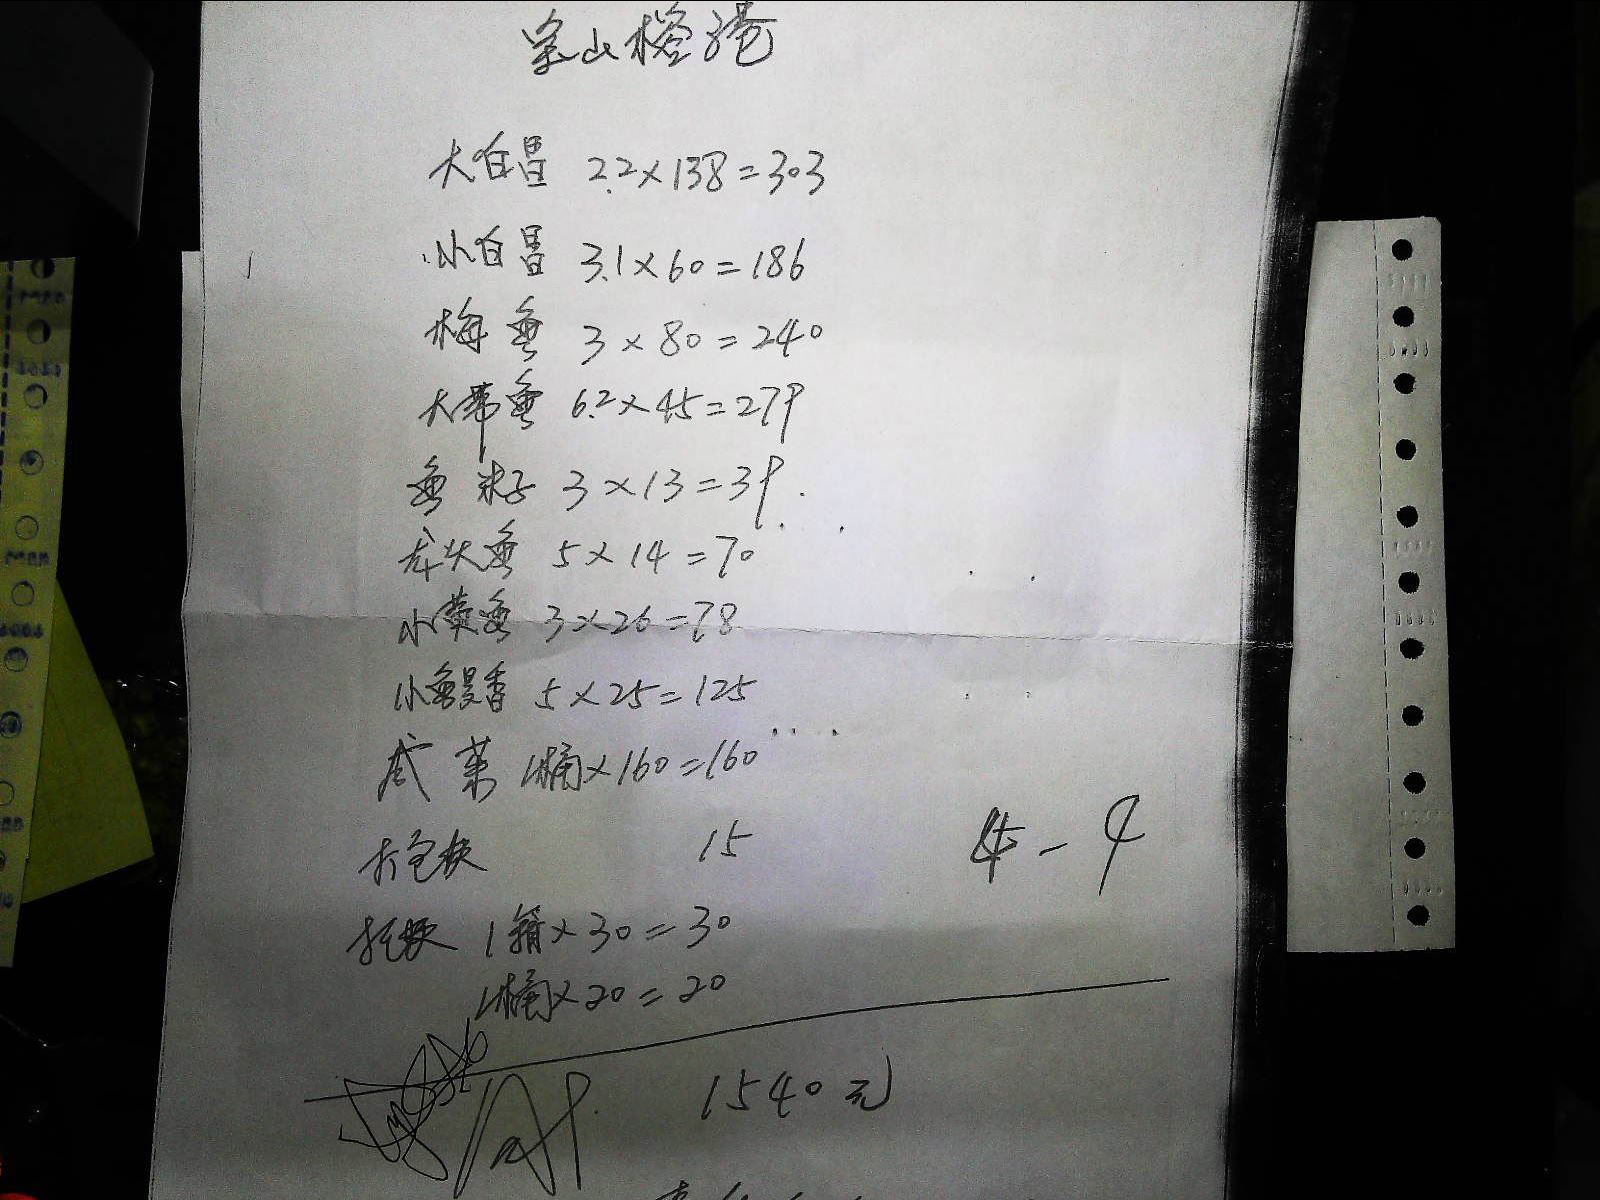 大白昌 2.2×138=303
小白昌 3.1×60=186
梅鱼 3×80=240
大带鱼 6.2×45=279
鱼籽 3×13=39
龙头鱼 5×14=70
小黄鱼 3×26=78
小鳗香 5×25=125
咸菜 1桶×160=160
打包扶 15
4-9
托扶 1箱×30=30
1桶×20=20
1540元